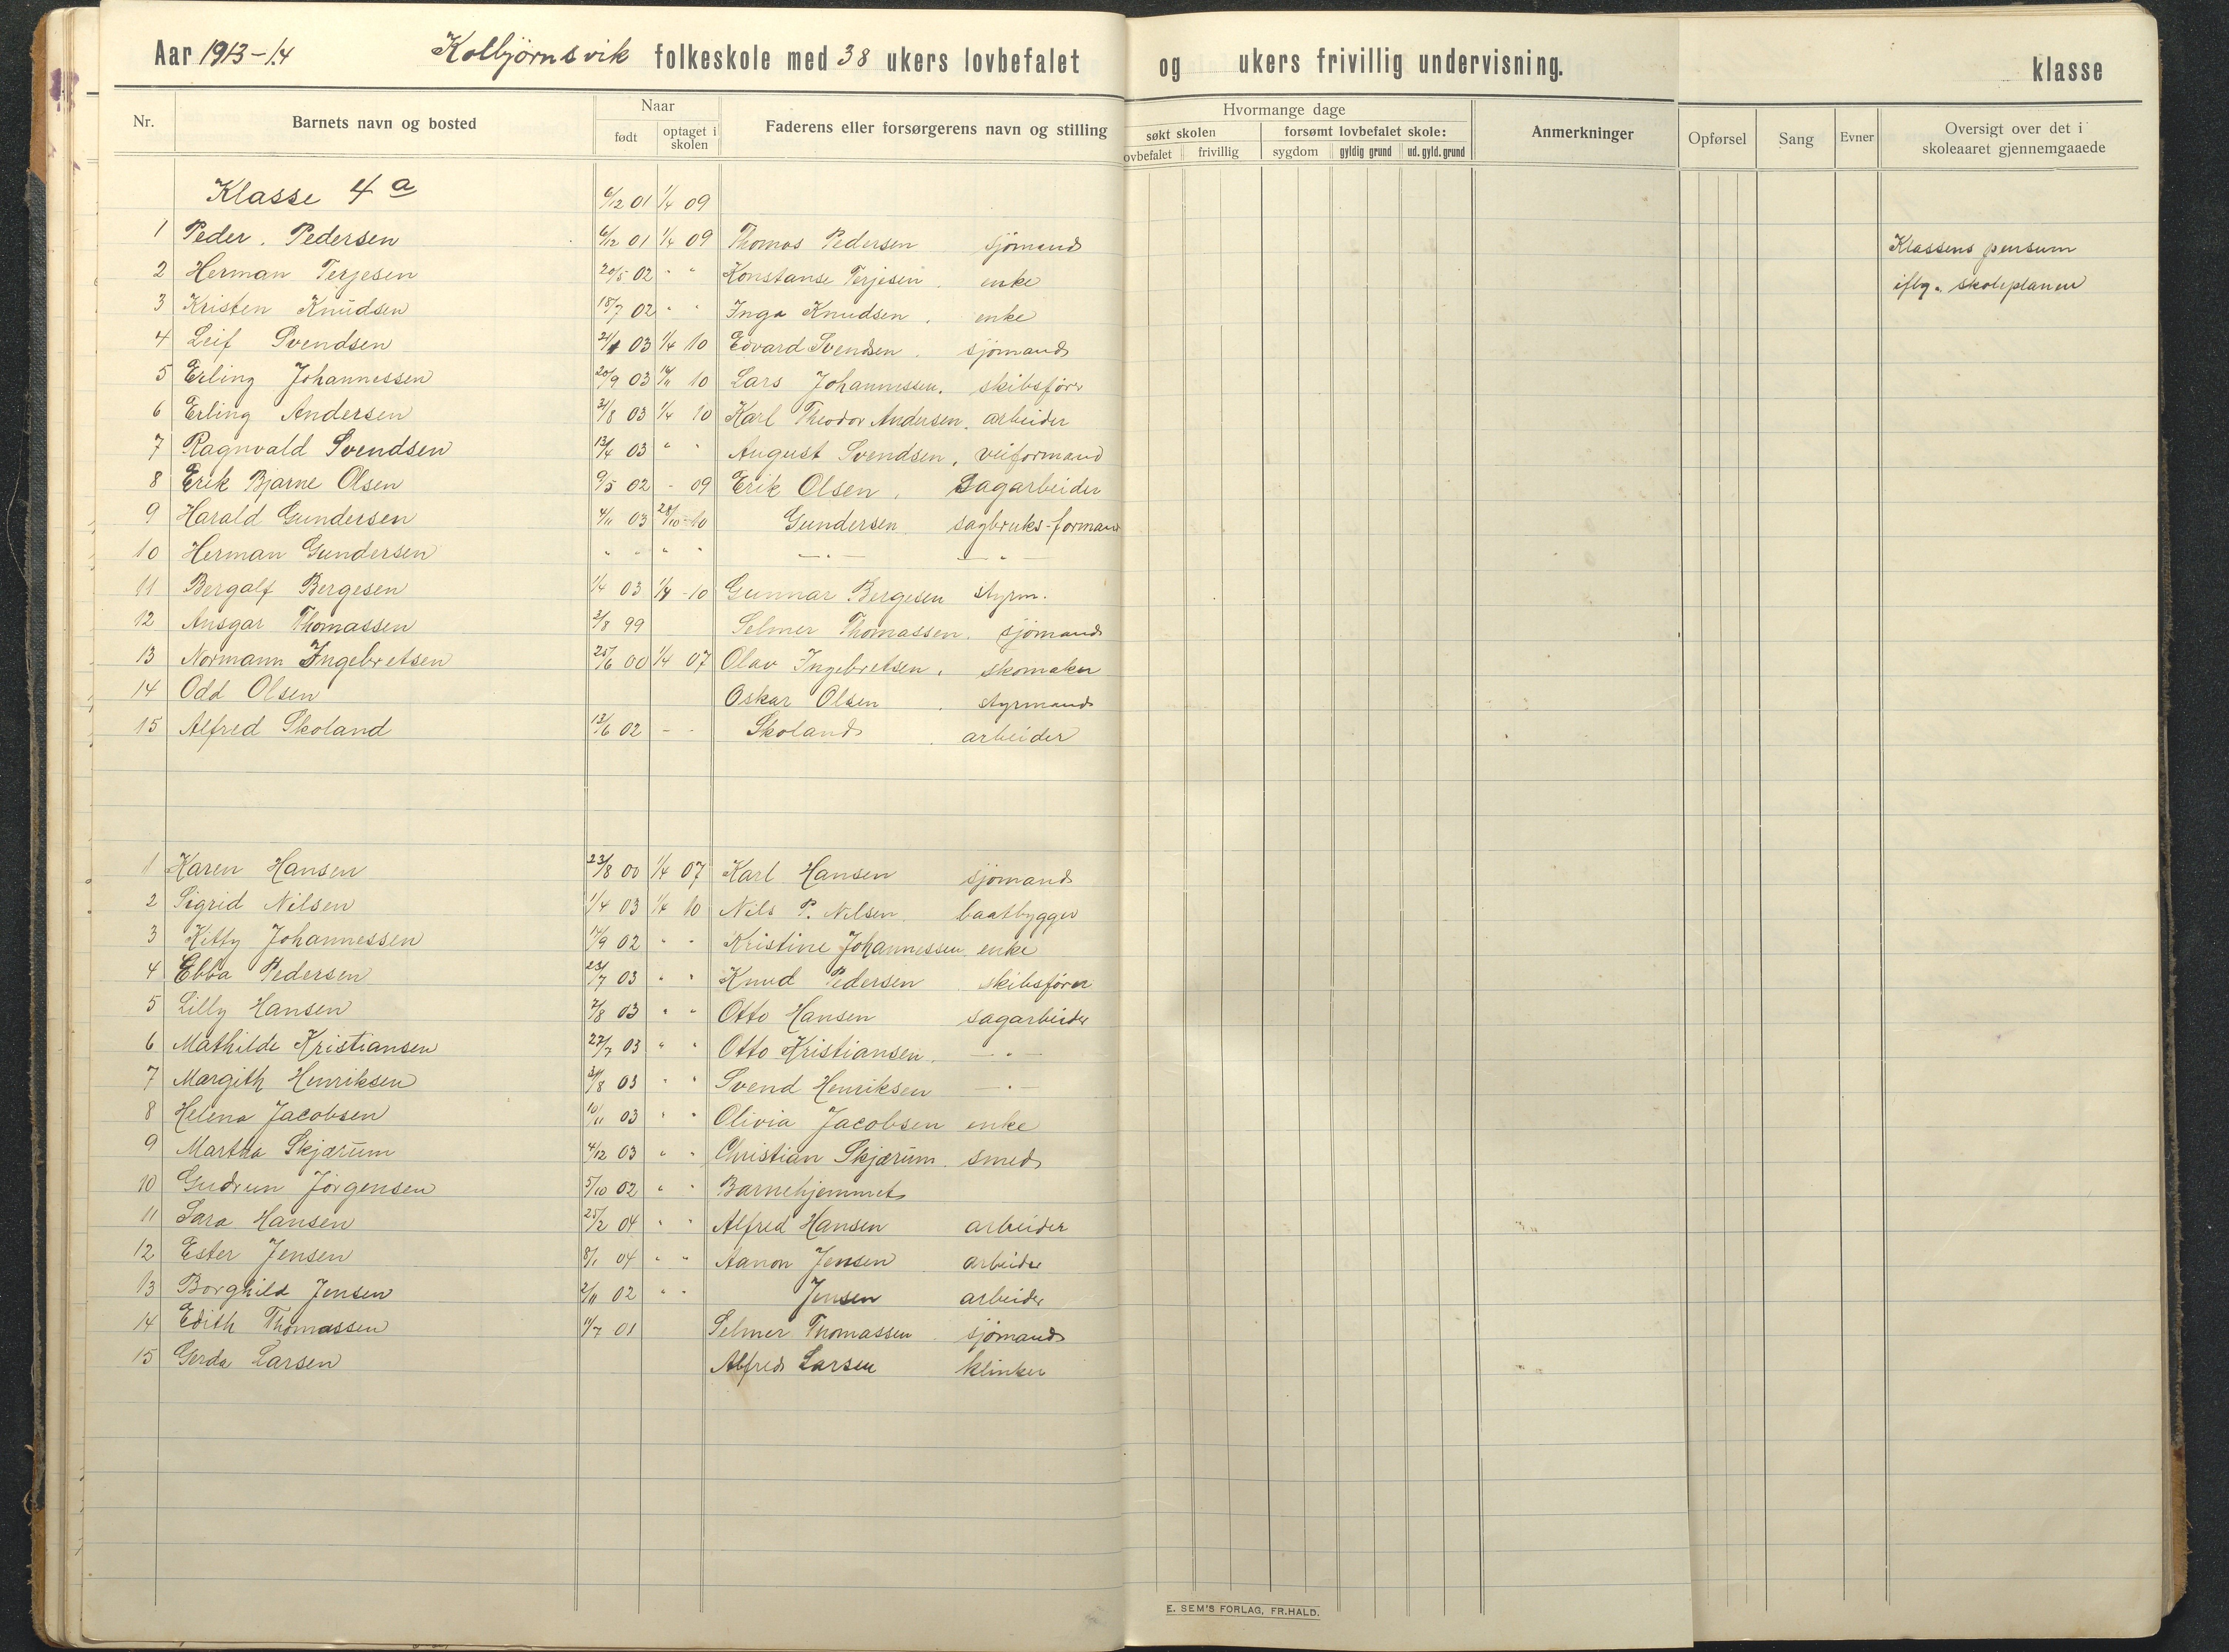 Aar 1913-14 Kolbjørnsvik folkeskole med 38 ukers lovbefalet og ukers frivillig undervisning. klasse
Nr. Barnets navn og bosted Naar født optaget i skolen Faderens eller forsørgerens navn og stilling Hvormange dage søkt skolen lovbefalet frivillig forsømt lovbefalet skole: sygdom gyldig grund ud. gyld. grund Anmerkninger Opførsel Sang Evner Oversigt over det i skoleaaret gjennemgaaede
Klasse 4 a 6/12 01 1/4 09
1 Peder. Pedersen 6/12 01 1/4 09 Thomas Pedersen sjømand Klassens pensum
2 Herman Terjesen 20/5 02 " " Konstanse Terjesen. enke iflg. skoleplanen
3 Kristen Knudsen 18/7 02 " " Inga Knudsen. enke
4 Leif Svendsen 03 1/4 10 Edvard Svendsen. sjømand
5 Erling Johannessen 20/9 03 10 Lars Johannessen. skibsfører
6 Erling Andersen 31/8 03 1/4 10 Karl Theodor Andersen. arbeider
7 Ragnvald Svendsen 13/4 03 " " August Svendsen. veiformand
8 Erik Bjarne Olsen 9/5 02 - 09 Erik Olsen. Sagarbeider
9 Harald Gundersen 4/11 03 28/10-10 Gundersen sagbruks-formand
10 Herman Gundersen " " " " —"— —"—
11 Bergalf Bergesen 1/4 03 1/4 -10 Gunnar Bergesen styrm.
12 Ansgar Thomassen 3/8 99 Selmer Thomassen. sjømand
13 Normann Ingebretsen 25/6 00 1/4 07 Olav Ingebretsen. skomaker
14 Odd Olsen Oskar Olsen. styrmand
15 Alfred Skoland 13/6 02 - - Skoland. arbeider
1 Karen Hansen 23/8 00 1/4 07 Karl Hansen sjømand
2 Sigrid Nilsen 1/4 03 1/4 10 Nils P. Nilsen. baatbygger
3 Kitty Johannessen 17/9 02 " " Kristine Johannessen. enke
4 Ebba Pedersen 23/7 03 " " Knud Pedersen. skibsfører
5 Lilly Hansen 7/8 03 " " Otto Hansen sagarbeider
6 Mathilde Kristiansen 27/7 03 " " Otto Kristiansen. —"—
7 Margith Henriksen 31/8 03 " " Svend Henriksen —"—
8 Helena Jacobsen 10/11 03 " " Olivia Jacobsen enke
9 Martha Skjærum 4/12 03 " " Christian Skjærum. smed
10 Gudrun Jørgensen 5/10 02 " " Barnehjemmet
11 Sara Hansen 25/2 04 " " Alfred Hansen arbeider
12 Ester Jensen 8/1 04 " " Aanon Jensen. arbeider
13 Borghild Jensen 2/11 02 " " Jensen arbeider
14 Edith Thomassen 11/7 01 Selmer Thomassen. sjømand
15 Gerda Larsen Alfred Larsen klinker
E. SEM'S FORLAG, FR.HALD.